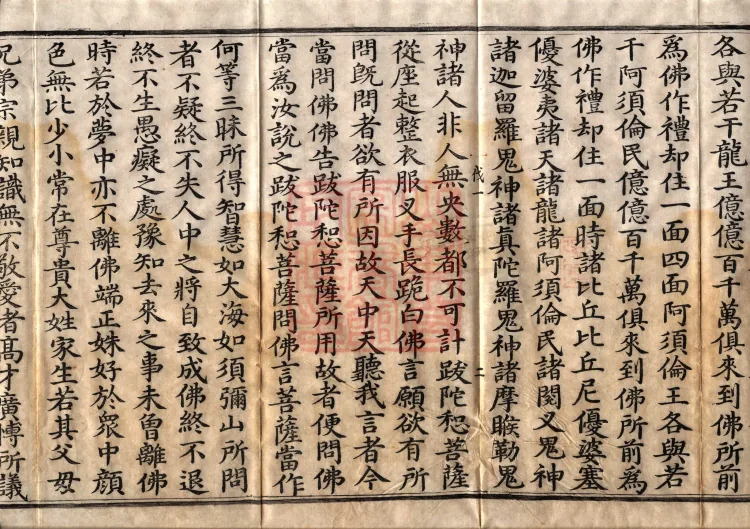 各與若干龍王億億百千萬俱來到佛所前
爲佛作禮却住一面四面阿須倫王各與若
千阿須倫民億億百千萬俱來到佛所前爲
佛作禮却住一面時諸比丘比丘尼優婆塞
優婆夷諸天諸龍諸阿須倫民諸閱叉鬼神
諸迦留羅鬼神諸眞陀羅鬼神諸摩睺勒鬼
二
神諸人非人無央數都不可計跋陀惒菩薩
從座起整衣服叉手長跪白佛言願欲有所
問旣問者欲有所因故天中天聽我言者今
當問佛佛告跋陀惒菩薩所用故者便問佛
當爲汝說之跋陀惒菩薩問佛言菩薩當作
何等三昧所得智慧如大海如須彌山所問
者不疑終不失人中之將自致成佛終不退
終不生愚癡之處豫知去來之事未曾離佛
時若於夢中亦不離佛端正姝好於衆中顔
色無比少小常在尊貴大姓家生若其父母
兄弟宗親知識無不敬愛者高才廣博所議